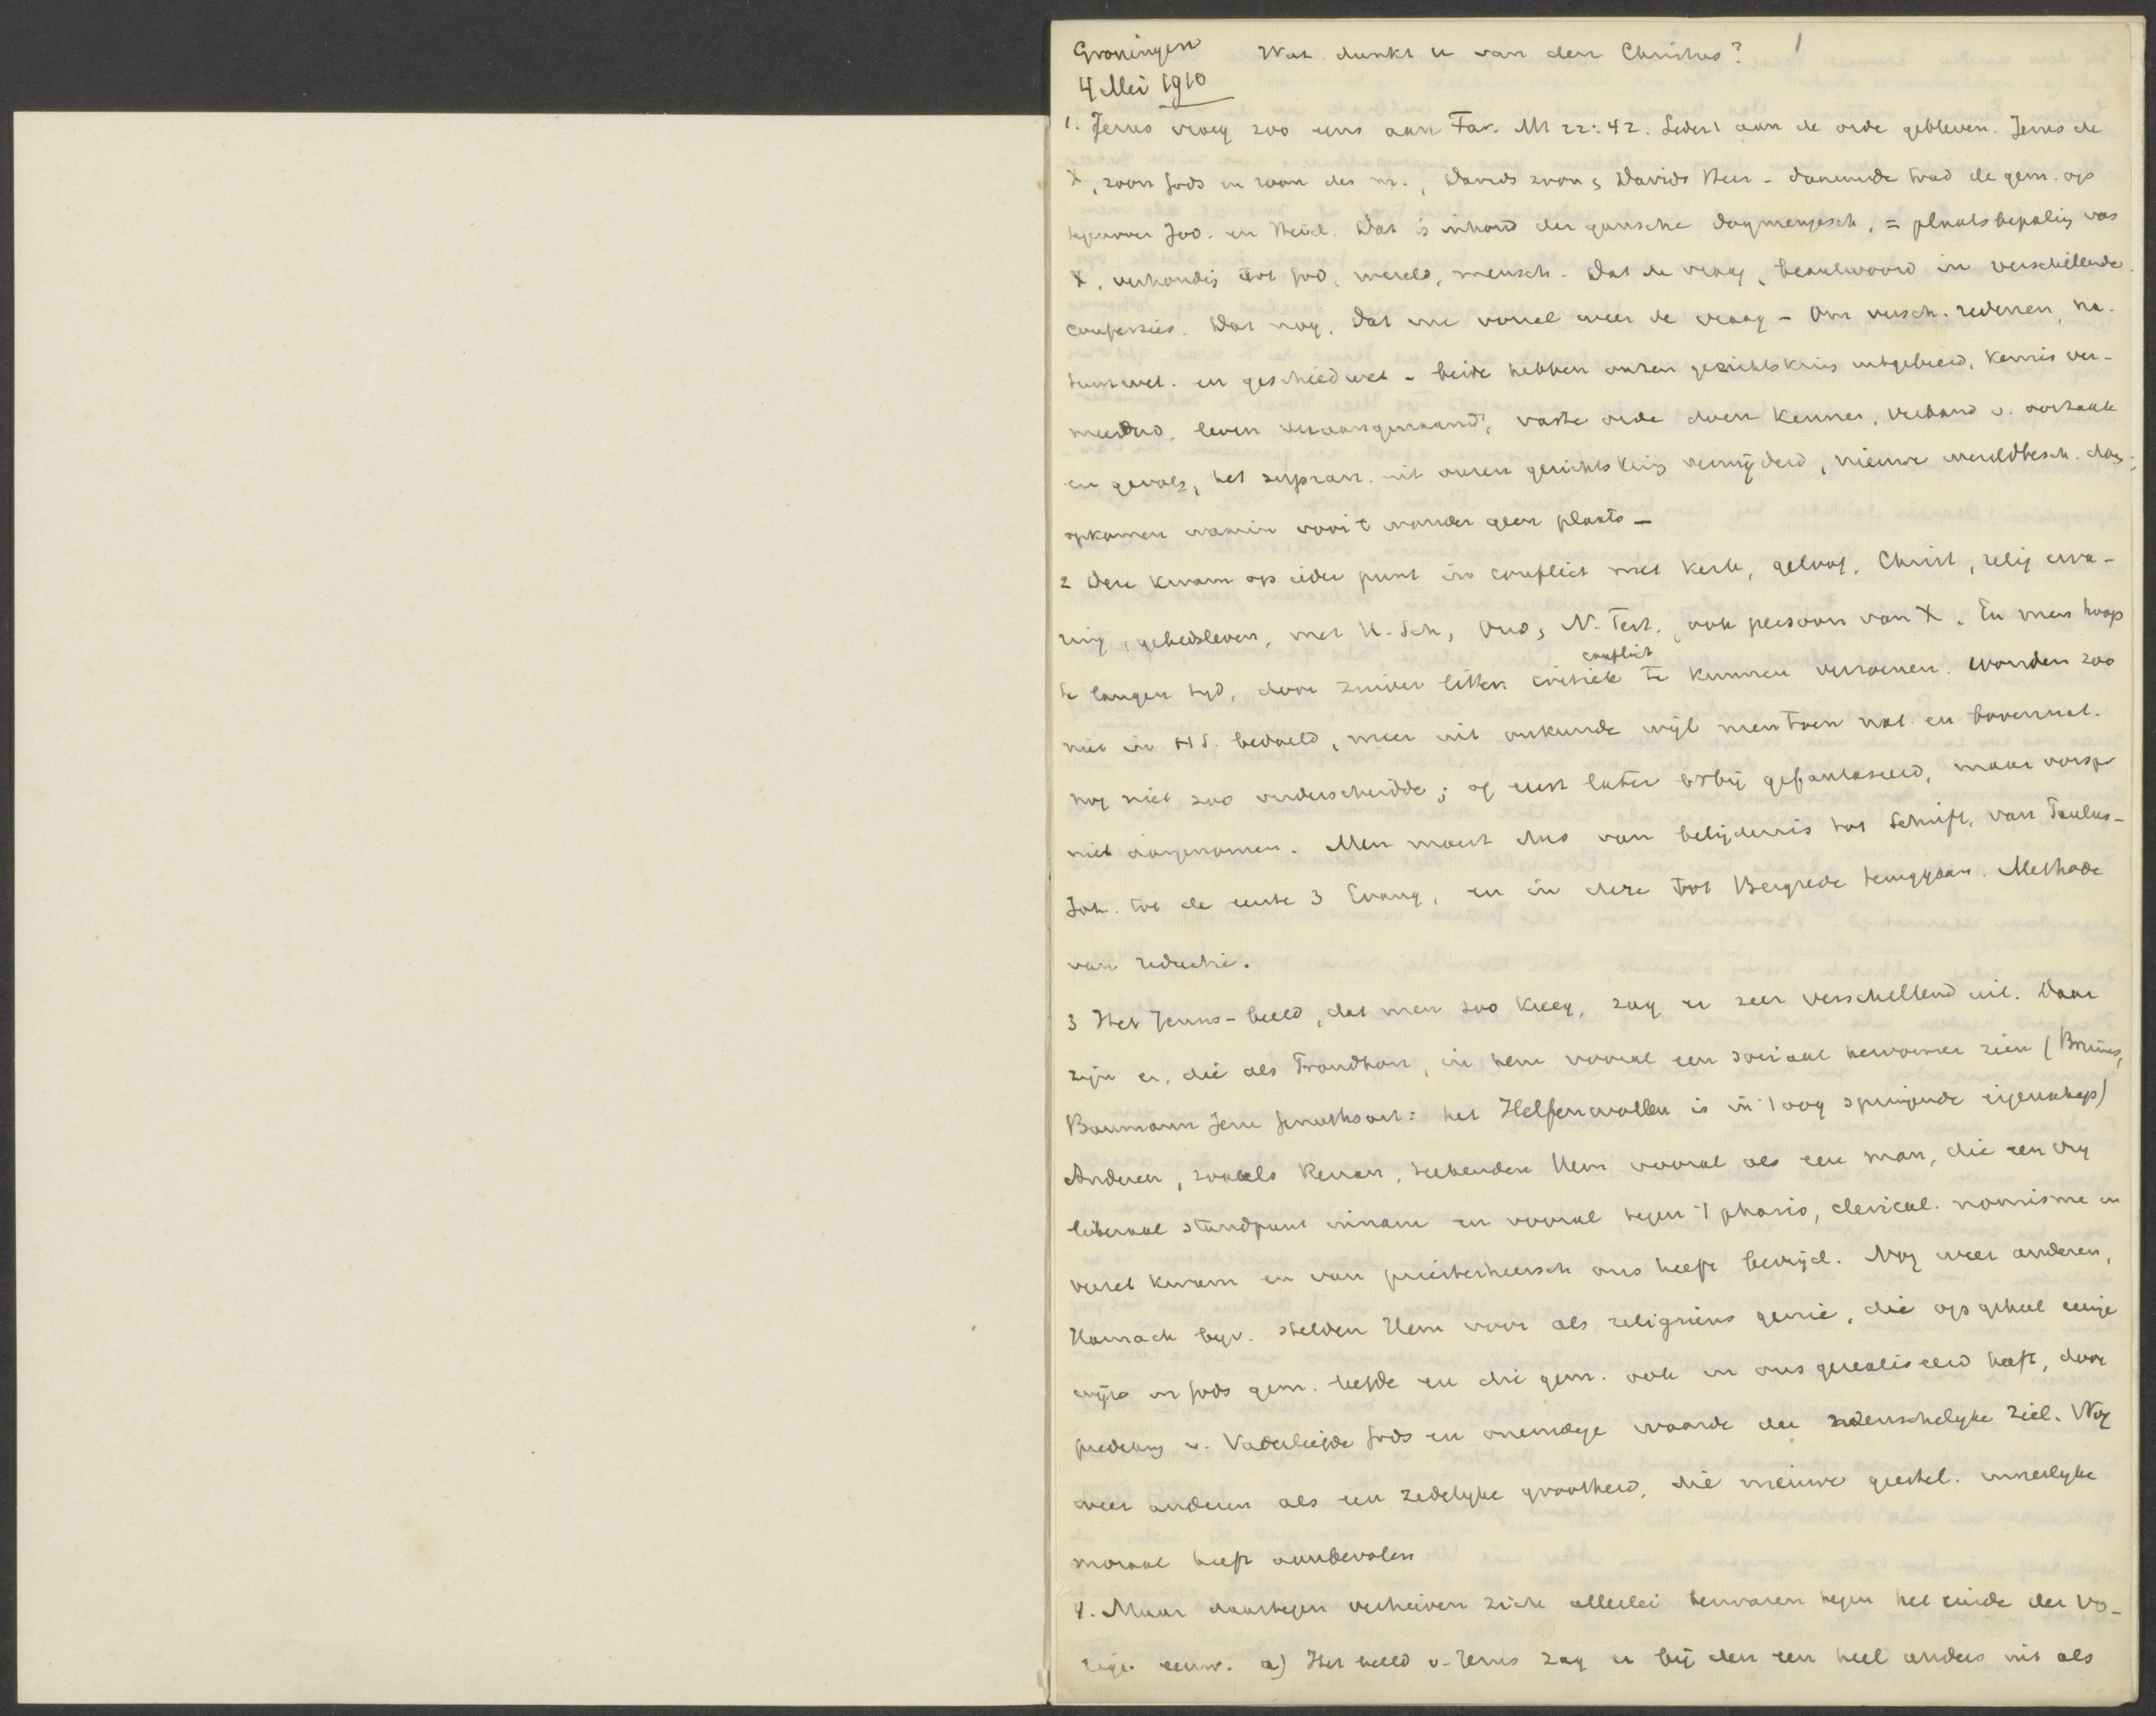 Groningen Wat dunkt u van den Christus? 1
4 Mei 1910
1. Jezus vroeg zoo eens aan Far. Mt 22:42. Sedert aan de orde gebleven. Jezus de
X, zoon Gods en zoon des m., Davids zoon & Davids Heer - daarmede trad de gem. op
tegenover Jod. en Heid. Dat is inhoud der gansche dogmengesch. = plaatsbepaling van
X, verhoudig tot God, wereld, mensch. Dat de vraag, beantwoord in verschillende
confessies. Dat nog. Dat nu vooral weer de vraag - Om versch. redenen, na-
tuurwet. en geschiedwet - beide hebben onzen gezichtskring uitgebreid, kennis ver-
meerderd, leven veraangenaamd, vaste orde doen kennen, verband v. oorzaak
en gevolg, het supran. uit onzen gezichtskring verwijderd, nieuwe wereldbesch. doen
opkomen waarin voor 't wonder geen plaats -
2 Deze kwam op ieder punt in conflict met kerk, geloof, Christ, relig erva-
ring, gebedsleven, met H. Sch, Oud, N. Test. ook persoon van X. En men hoop
te langen tijd, door zuiver litter. critiek conflict te kunnen verzoenen. Wonden zoo
niet in HS. bedoeld, meer uit onkunde wijl men toen nat. en bovennat.
nog niet zoo onderscheidde; of eerst later erbij gefantaseerd, maar oorspr
niet aangenomen. Men moest dus van belijdenis tot Schrift, van Paulus-
Joh. tot de eerste 3 Evang, en in deze tot Bergrede teruggaan. Methode
van reductie.
3 Het Jezus-beeld, dat men zoo kreeg, zag er zeer verschillend uit. Daar
zijn er, die als Proudhon, in hem vooral een sociaal hervormer zien (Bruins,
Baumann Jezu Gemüthsart: het Helfenwollen is in 't oog springende eigenschap)
Anderen, zooals Renan, teekenden Hem vooral als een man, die een vrij
liberaal standpunt innam en vooral tegen 't pharis, clerical. nomisme in
verzet kwam en van priesterheersch ons heeft bevrijd. Nog weer anderen,
Harnack bijv. stelden Hem voor als religieus genie, die op geheel eenige
wijze in Gods gem. leefde en die gem. ook in ons gerealiseerd heeft, door
prediking v. Vaderliefde Gods en oneindige waarde der menschelijke ziel. Nog
weer anderen als een zedelijke grootheid, die nieuwe geestel. innerlijke
moraal heeft aanbevolen
4. Maar daartegen verheven zich allerlei bezwaren tegen het einde der vo-
rige eeuw. a) Het beeld v. Jezus zag er bij den een heel anders uit als